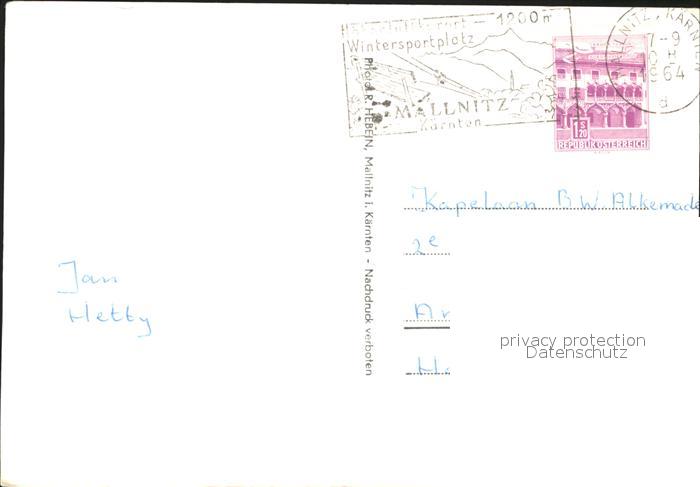 Höhenluftkurort - 1200 m
Wintersportplatz
MALLNITZ
Kärnten
MALLNITZ, KÄRNTEN
7-9
1964
d
1 S 20
REPUBLIK ÖSTERREICH
HEBEIN, Mallnitz i. Kärnten - Nachdruck verboten
Kapelaan B.W. Alkemade
2e
Ar
H.
Jan
Hetty
privacy protection
Datenschutz